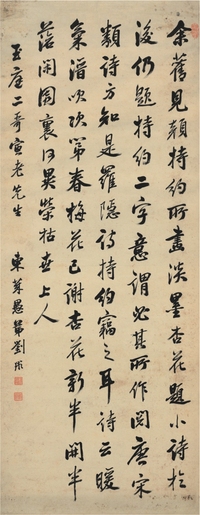 余舊見顏持約所畫淡墨杏花題小詩於
後仍題持約二字意謂必其所作閱唐宋
類詩方知是羅隱詩持約竊之耳詩云暖
氣潛吹次第春梅花已謝杏花新半開半
落閒園裏何異榮枯世上人
玉二哥宣老先生 東萊愚弟劉